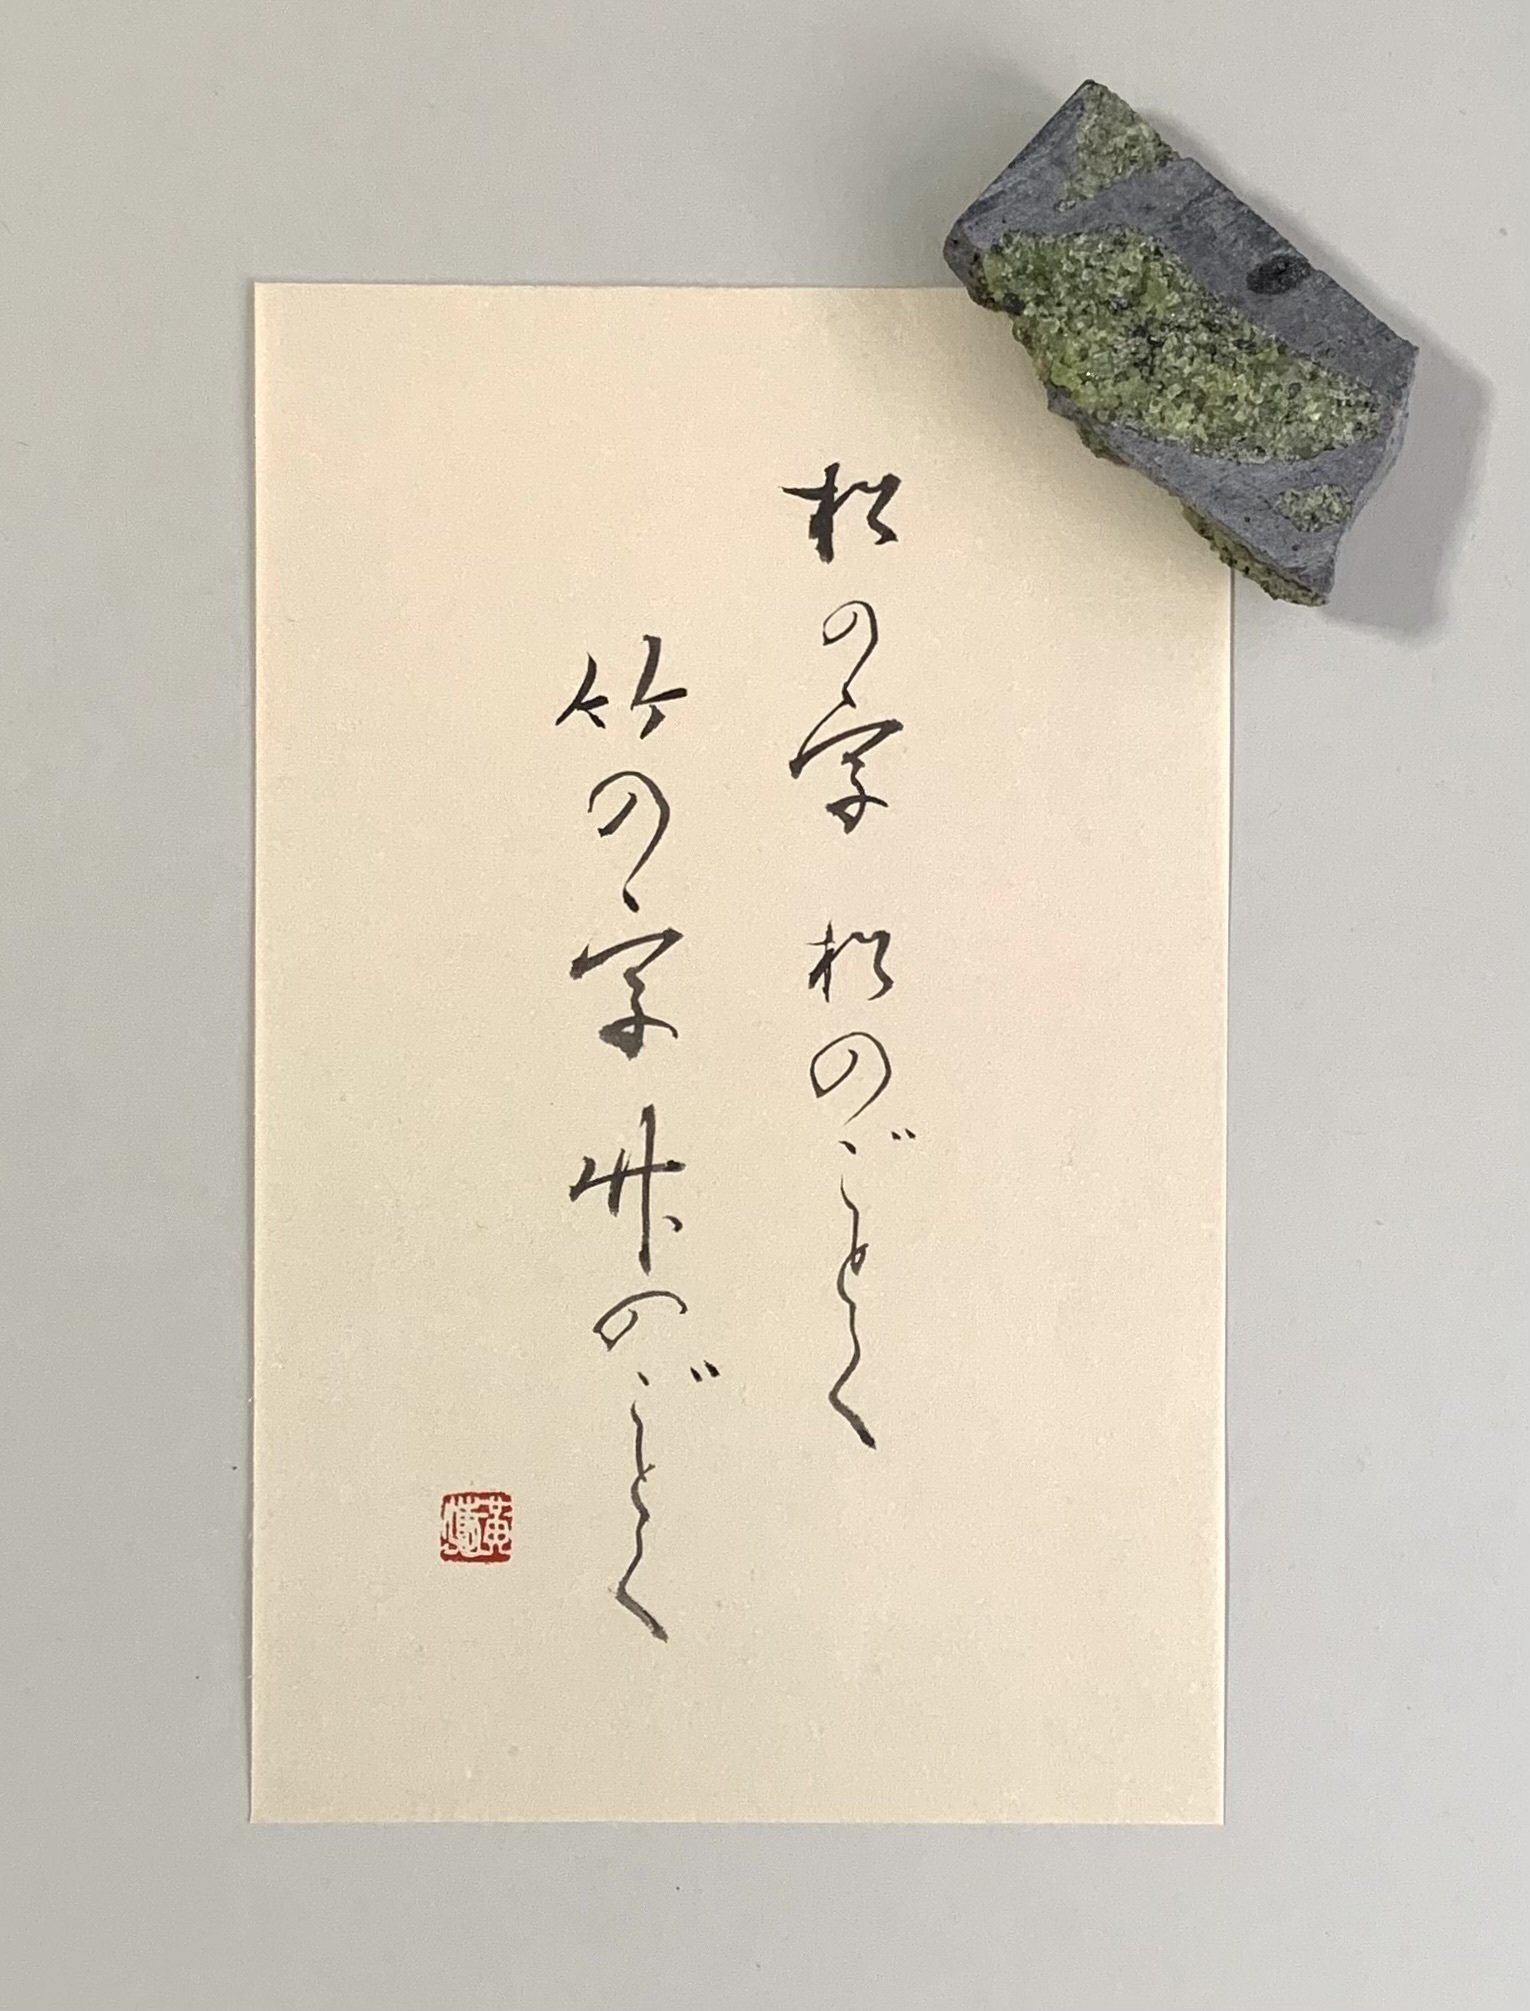 松の字 松のごとく
竹の字 竹のごとく